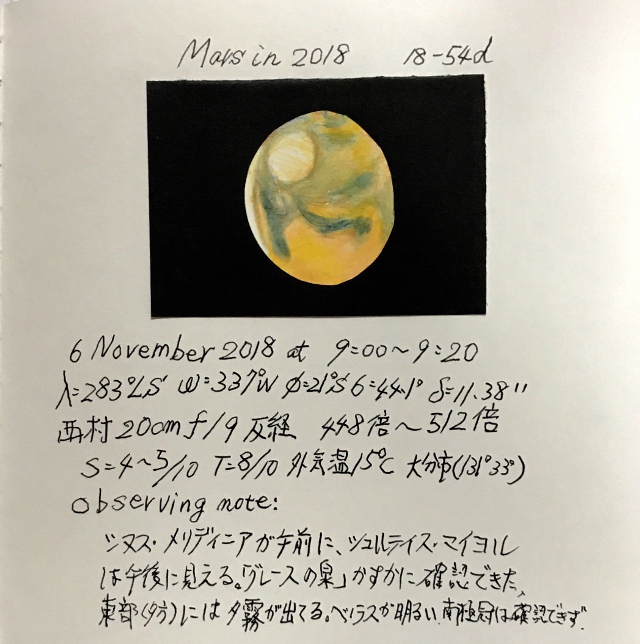 Mars in 2018 18-54d
6 November 2018 at 9:00~9:20
λ=283°LS ω=337°W φ=21°S 6=44.1° δ=11.38"
西村 200mm f/9 反経 448倍~512倍
S=4~5/10 T=8/10 外気温15℃ 大分市(131°33')
Observing note:
シヌス・メリディニアが午前に、シュルティス・マイヨル
は午後に見える。「グレースの泉」かすかに確認できた、
東部(夕方)には夕霧が出てる。ヘラスが明るい、南極冠は確認できず.